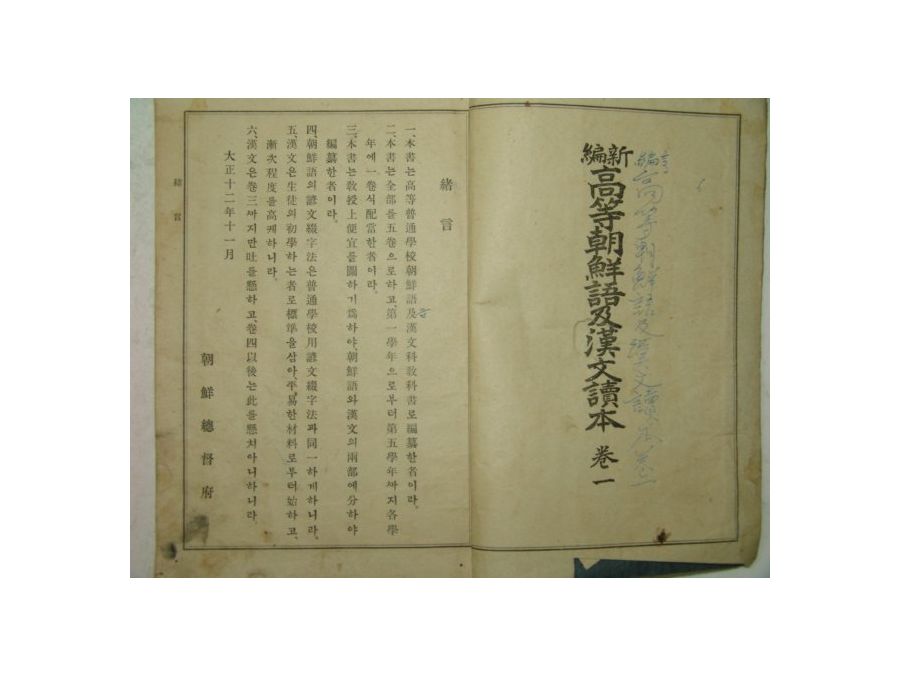 新編
高等朝鮮語及漢文讀本 卷一
編高等朝鮮語及漢文讀本卷一
緖言
一、本書는高等普通學校朝鮮語及漢文科敎科書로編纂한者이라.
二、本書는全部를五卷으로하고、第一學年으로부터第五學年ᄭᅡ지各學
年에一卷式配當한者이라.
三、本書는敎授上便宜를圖하기爲하야、朝鮮語와漢文의兩部에分하야
編纂한者이라.
四、朝鮮語의諺文綴字法은普通學校用諺文綴字法과同一하게하니라.
五、漢文은生徒의初學하는者로標準을삼아、平易한材料로부터始하고、
漸次程度를高케하니라.
六、漢文은卷三ᄭᅡ지만吐를懸하고、卷四以後는此를懸치아니하니라.
大正十二年十一月
朝鮮總督府
緖言